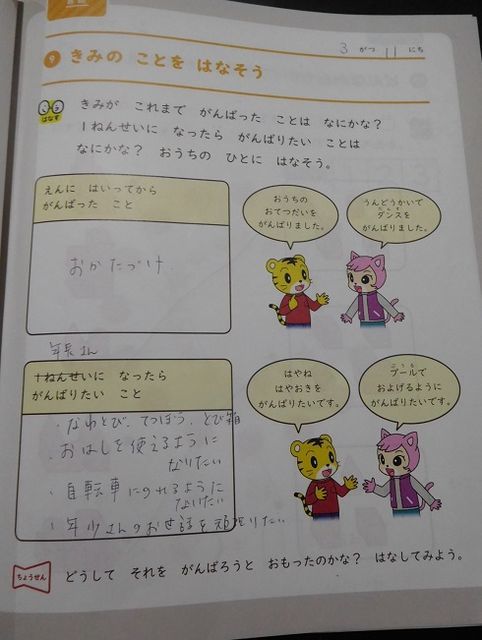 3 がつ 11 にち
9 きみの ことを はなそう
はなす
きみが これまで がんばった ことは なにかな?
1ねんせいに なったら がんばりたい ことは
なにかな? おうちの ひとに はなそう。
えんに はいってから
がんばった こと
おかたづけ
おうちの
おてつだいを
がんばりました。
うんどうかいで
ダンスを
がんばりました。
年長さん
1ねんせいに なったら
がんばりたい こと
・なわとび、てつぼう、とび箱
・おはしを使えるように
なりたい
・自転車にのれるように
なりたい
・年少さんのお世話を頑張りたい
はやね
はやおきを
がんばりたいです。
プールで
およげるように
がんばりたいです。
ちょうせん
どうして それを がんばろうと おもったのかな? はなしてみよう。